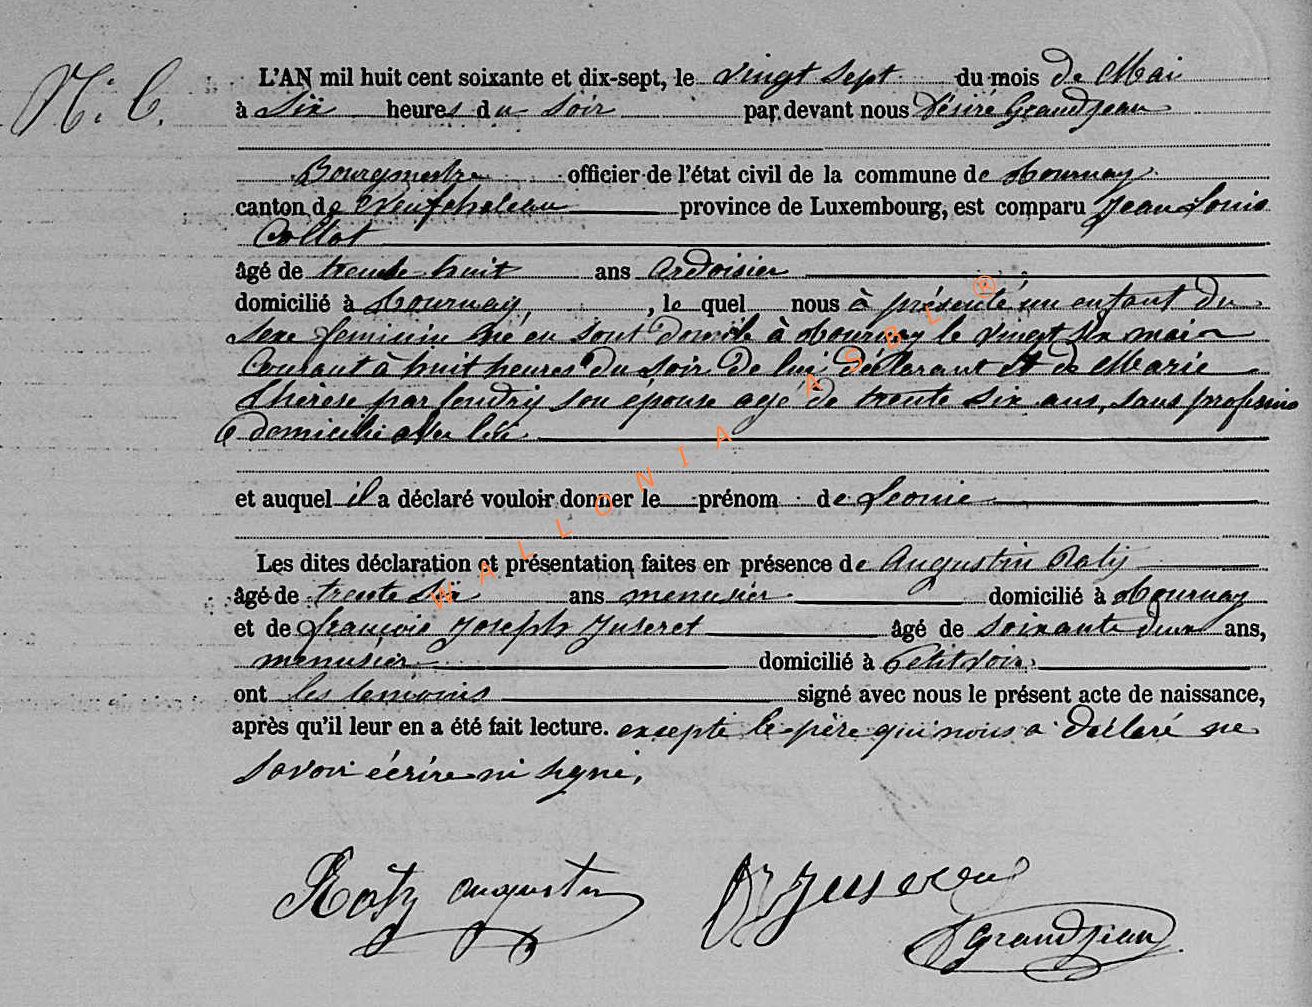 N. 6.
L'AN mil huit cent soixante et dix-sept, le vingt sept du mois de Mai
à six heures du soir par devant nous Désiré Grandjean
Bourgmestre officier de l'état civil de la commune de Tournay
canton de Neufchateau province de Luxembourg, est comparu Jean Louis
Collot
âgé de trente-huit ans Ardoisier
domicilié à Tournay, , le quel nous à présenté un enfant du
sexe feminin né en sont domicile à Tournay le vingt six mai
Courant à huit heures du soir de lui déclarant et de Marie
Thérèse son épouse agé de trente six ans, sans profession
& domicilié avec lui
et auquel il a déclaré vouloir donner le prénom de Leonie
Les dites déclaration et présentation faites en présence de Augustin Raty
âgé de trente six ans menusier domicilié à Tournay
et de françois Joseph Juseret âgé de soixante deux ans,
menusier domicilié à Petitvoir
ont les temoins signé avec nous le présent acte de naissance,
après qu'il leur en a été fait lecture. excepté le père qui nous a déclaré ne
savoir écrire ni signé.
Raty augustin
Juseret
Grandjean
WALLONIA ASBL ®